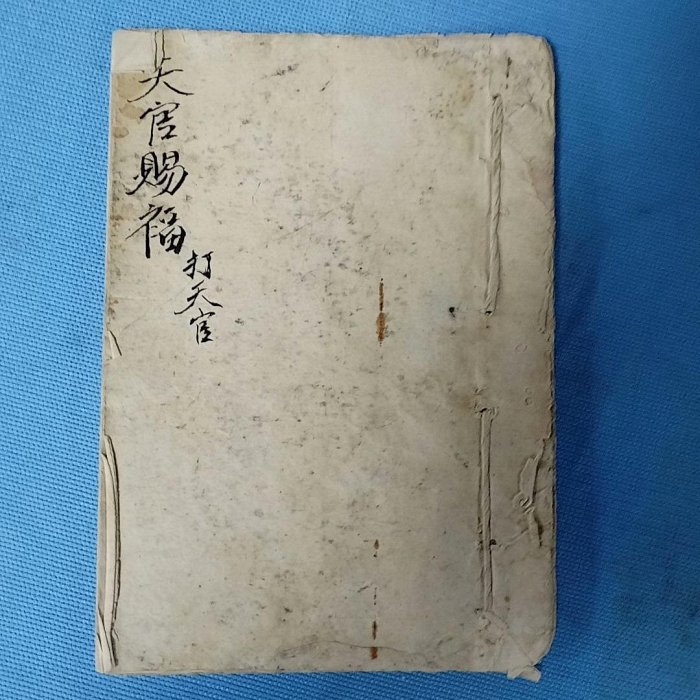 天官賜福
打天官